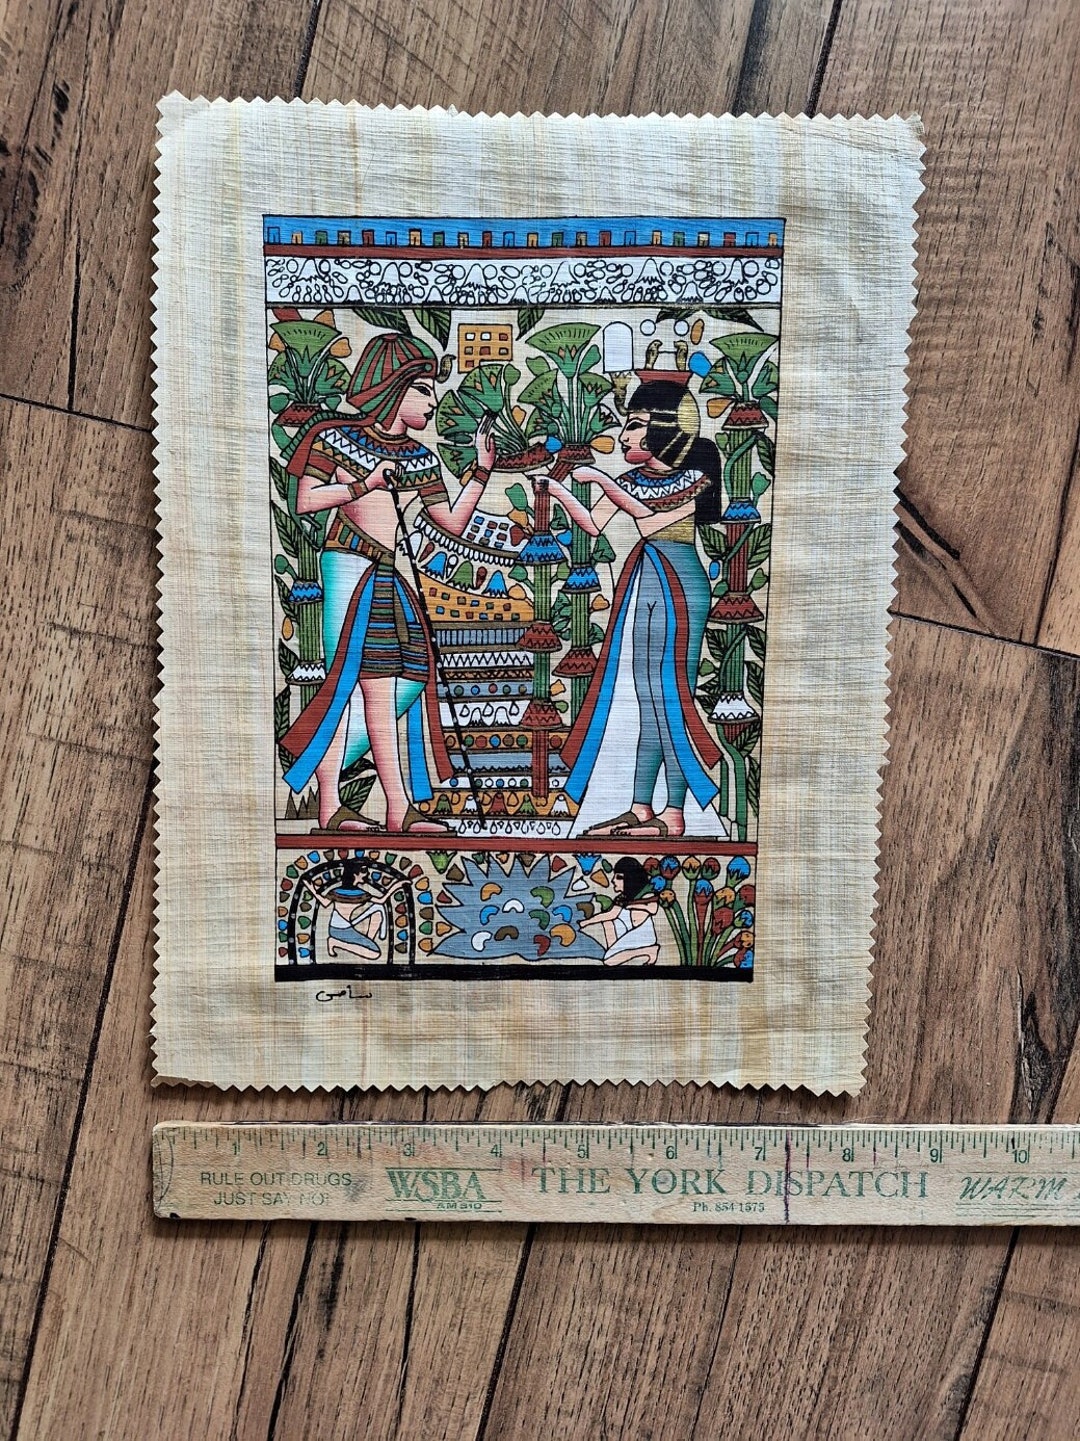 سامى
1 2 3 4 5 6 7 8 9 10
RULE OUT DRUGS
JUST SAY NO!
WSBA
AM 910
THE YORK DISPATCH
Ph. 854 1575
WARM